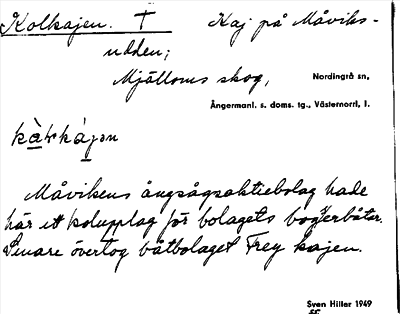 Kolkajen. † Kaj på Måviks-
udden;
Mjälloms skog, Nordingrå sn,
Ångermanl. s. doms. tg., Västernorrl. l.
Måvikens ångsågsaktiebolag hade
här ett kolupplag för bolagets bogserbåtar.
Senare övertog båtbolaget Frey kajen.
Sven Hiller 1949